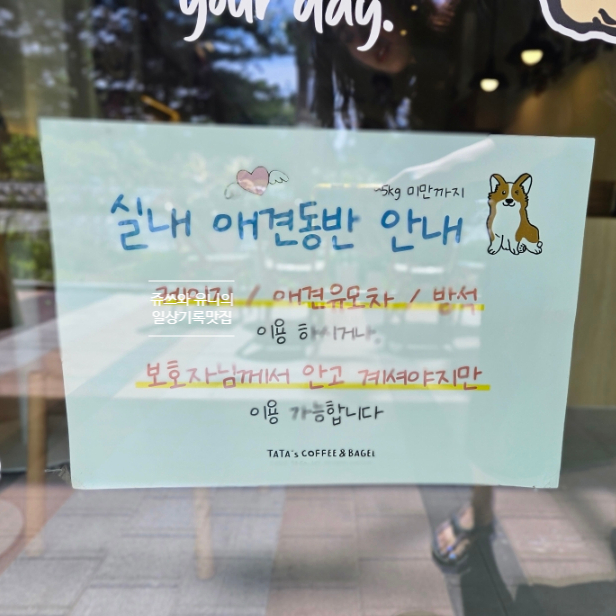 your day.
~5kg 미만까지
실내 애견동반 안내
케이지 / 애견유모차 / 방석
쥬쓰와 유니의
일상기록맛집
이용 하시거나,
보호자님께서 안고 계셔야지만
이용 가능합니다
TATA's COFFEE & BAGEL